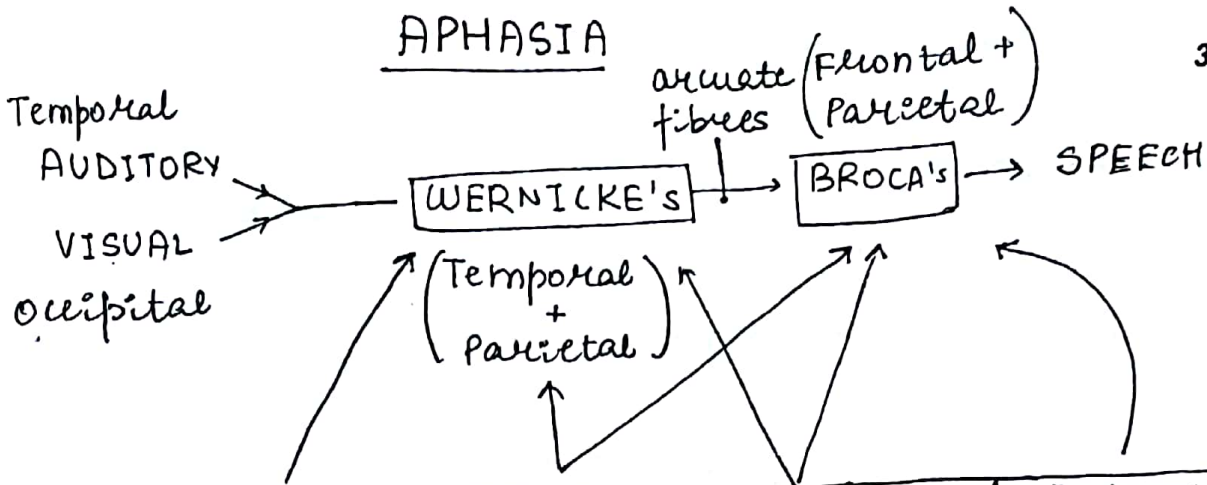 APHASIA
3
Temporal
AUDITORY
VISUAL
Occipital
WERNICKE's
(Temporal
+
Parietal)
arcuate
fibres
(Frontal +
Parietal)
BROCA's
SPEECH